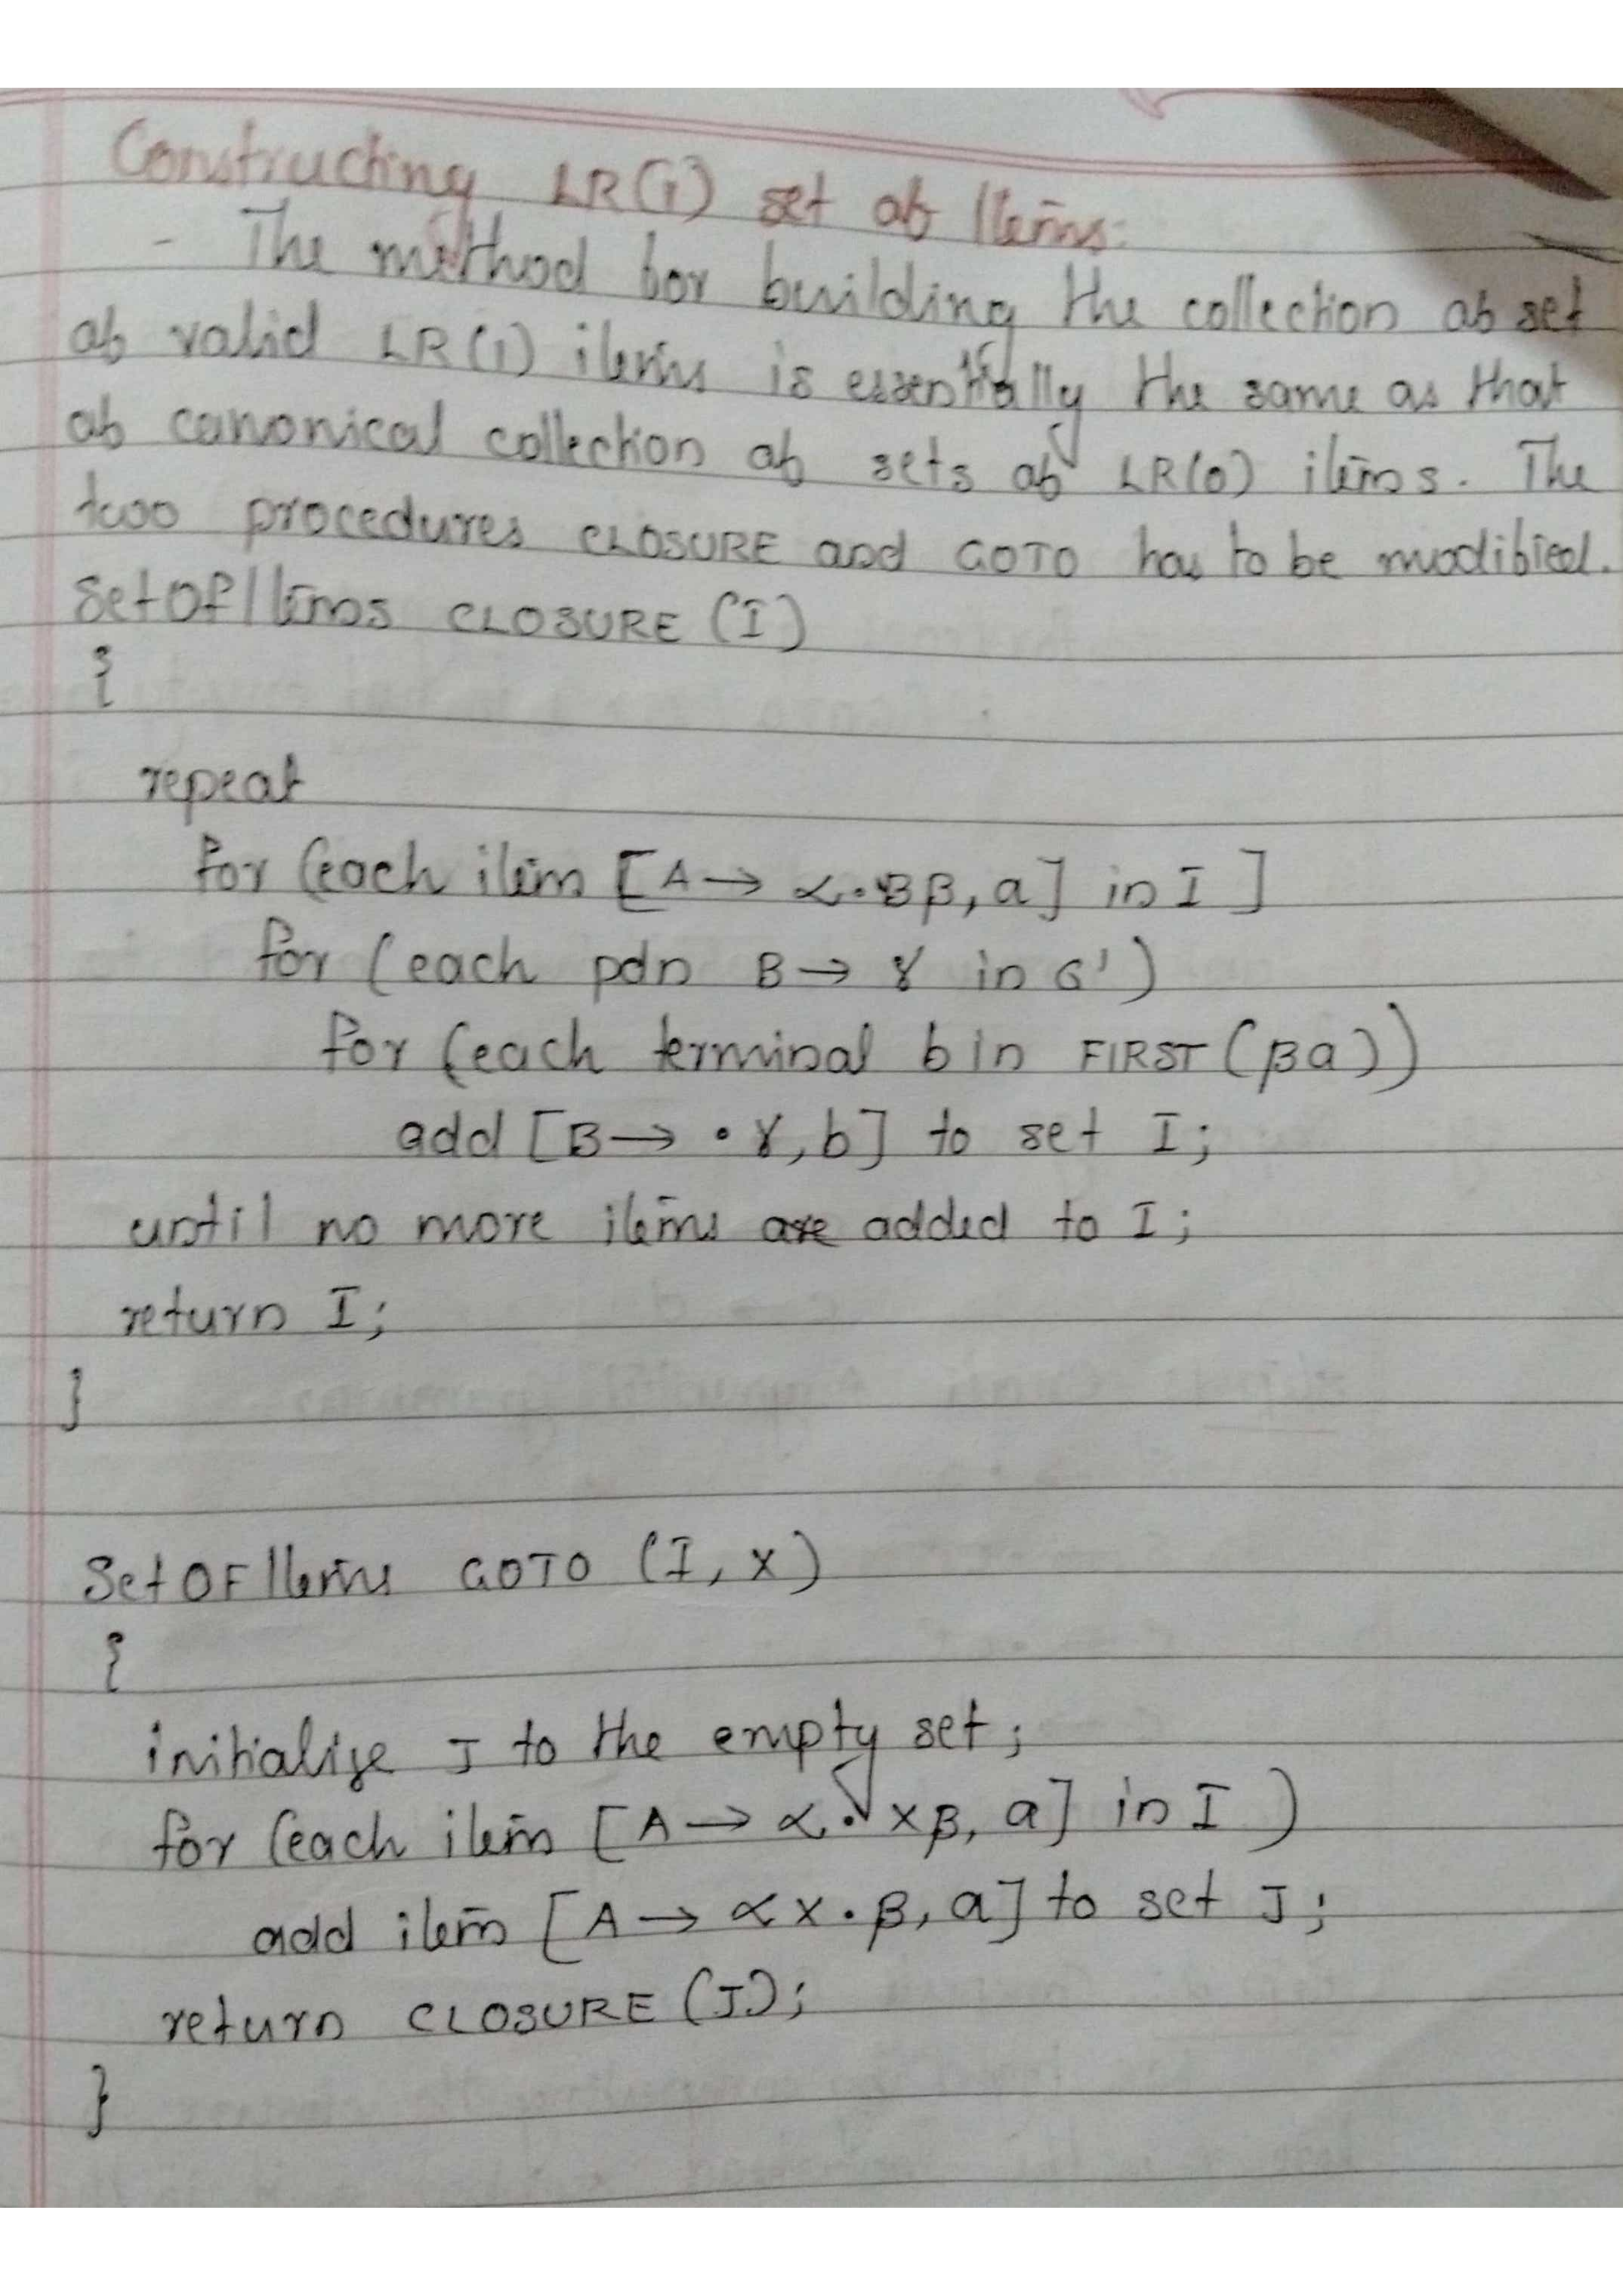 Constructing LR(1) set of Items:
- The method for building the collection of set
of valid LR(1) items is essentially the same as that
of canonical collection of sets of LR(0) items. The
two procedures CLOSURE and GOTO has to be modified.
SetOfItems CLOSURE (I)
{
repeat
for (each item [A → α·Bβ, a] in I ]
for (each pdn B → γ in G')
for (each terminal b in FIRST(βa))
add [B → ·γ, b] to set I;
until no more items are added to I;
return I;
}
SetOFItems GOTO (I, X)
{
initialize J to the empty set;
for (each item [A → α·Xβ, a] in I )
add item [A → αX·β, a] to set J;
return CLOSURE (J);
}